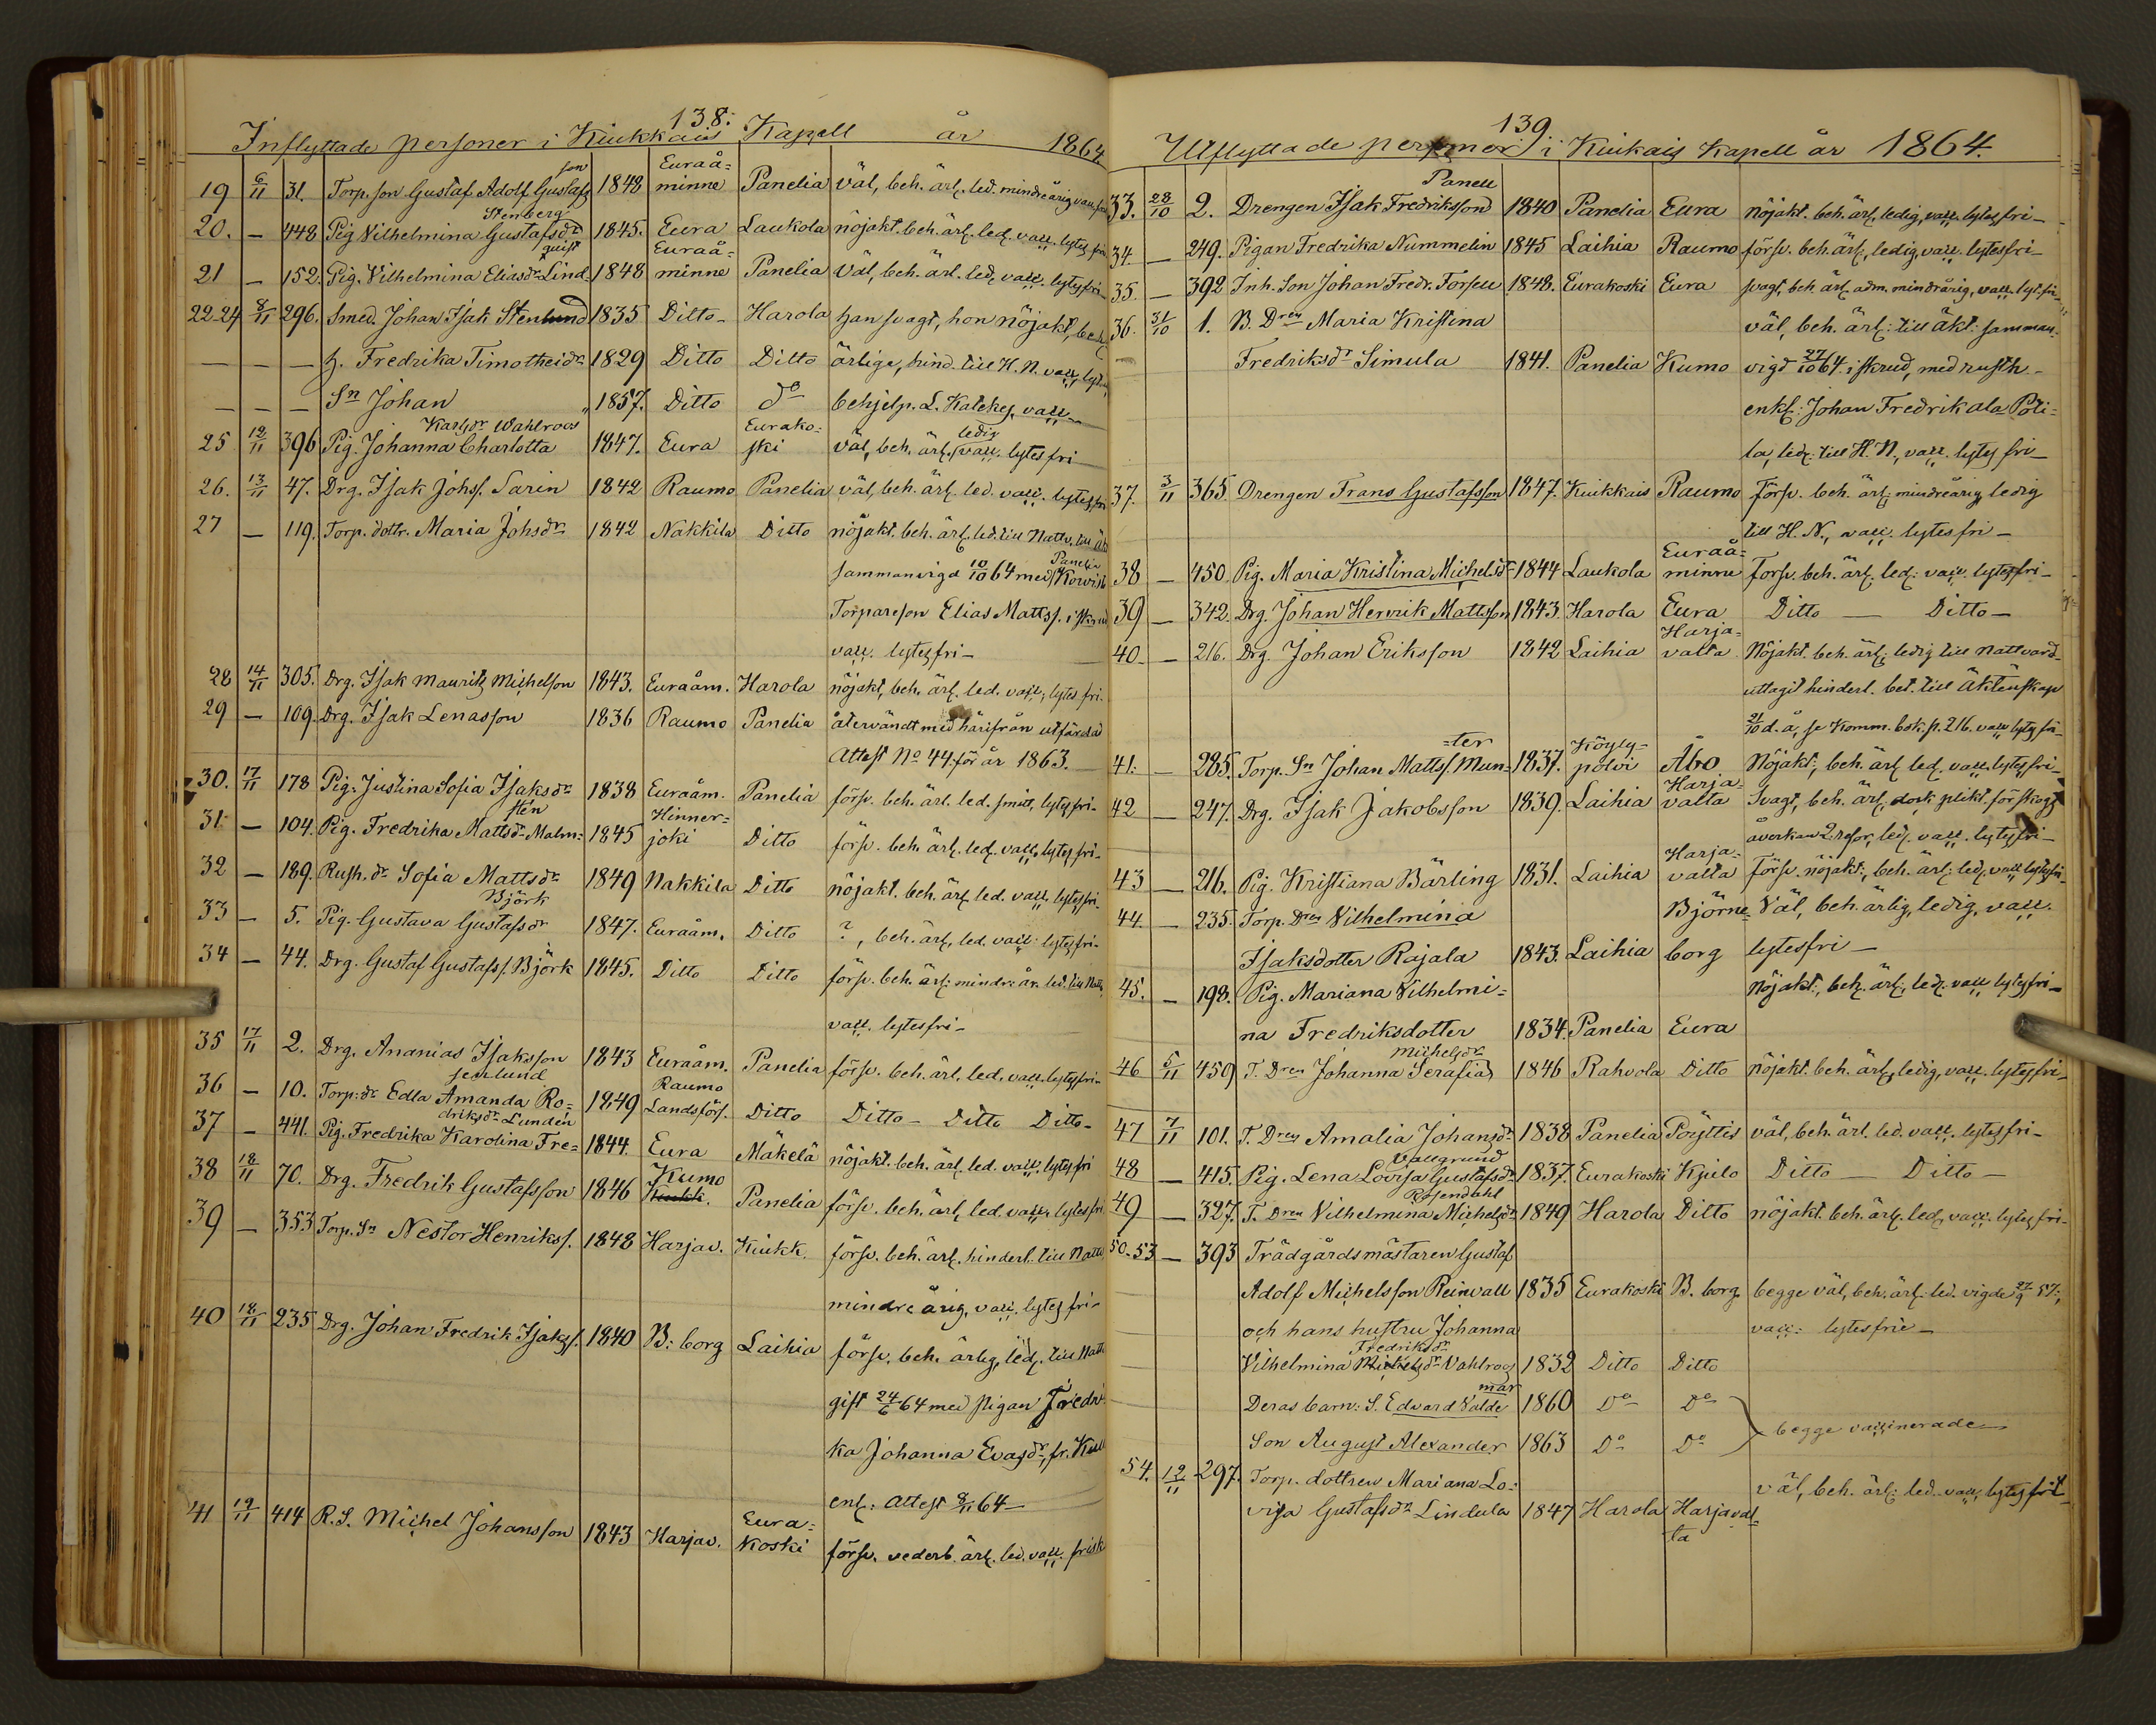 138.
Inflyttade personer i Kiukkais Kapell år 1864
19 6/11 31. Torp. son Gustaf Adolf Gustafsson 1848 Euraåminne Panelia väl, beh. ärl. led. mindreårig
20. — 448 Pig Vilhelmina Gustafsdr Stenberg 1845. Eura Laukola nöjakt. beh. ärl. led. vacc. lytesfri
21 — 152. Pig. Vilhelmina Eliasdr Lindquist 1848 Euraåminne Panelia Väl, beh. ärl. led. vacc. lytesfri
22-24 8/11 296. Smed. Johan Isak Stenlund 1835 Ditto Harola han svagt, hon nöjakt, beh.
— — — h. Fredrika Timotheidr 1829 Ditto Ditto ärliga, hind. till H. N. vacc,
— — — Sn Johan " 1857. Ditto do behjelp. L. Katekes, vacc
25 12/11 396 Pig. Johanna Charlotta Karlsdr Wahlroos 1847. Eura Eurakoski väl, beh. ärl. ledig vacc. lytesfri
26. 13/11 47. Drg. Isak Johs. Sarin 1842 Raumo Panelia väl, beh. ärl. led. vacc. lytesfri
27 — 119. Torp. dottr. Maria Johsdr 1842 Nakkila Ditto nöjakt. beh. ärl. led. till Nattv. till
sammanvigd 10/10 64 med Panelia
Torpareson Elias Matts.
vacc. lytesfri
28 14/11 305. Drg. Isak Mauritz Michelson 1843. Euraåm. Harola nöjakt, beh. ärl. led. vacc. lytesfri.
29 — 109. Drg. Isak Lenasson 1836 Raumo Panelia återvändt med härifrån utfärdad
Attest No 44. för år 1863.
30. 17/11 178 Pig. Justina Sofia Isaksdr 1838 Euraåm. Panelia försv. beh. ärl. led. smitt. lytesfri
31 — 104. Pig. Fredrika Mattsdr Malmsten 1845 Hinnerjoki Ditto försv. beh. ärl. led. vacc. lytesfri
32 — 189. Rush. dr Sofia Mattsdr 1849 Nakkila Ditto nöjakt. beh. ärl. led. vacc. lytesfri.
33 — 5. Pig. Gustava Gustafsdr Björk 1847. Euraåm. Ditto ?, beh. ärl. led. vacc. lytesfri
34 — 44. Drg. Gustaf Gustafs. Björk 1845. Ditto Ditto försv. beh. ärl. mindreår. led. till Nattv.
vacc. lytesfri
35 17/11 2. Drg. Ananias Isaksson 1843 Euraåm. Panelia försv. beh. ärl. led. vacc. lytesfri
36 — 10. Torp. dr Edla Amanda Rosenlund 1849 Raumo Landsförs. Ditto Ditto Ditto Ditto
37 — 441. Pig. Fredrika Karolina Fredriksdr Lundén 1844. Eura Mäkelä nöjakt. beh. ärl. led. vacc. lytesfri
38 18/11 70. Drg. Fredrik Gustafsson 1846 Kumo Kiukk. Panelia försv. beh. ärl. led. vacc. lytesfri
39 — 353. Torp. Sn Nestor Henriks. 1848 Harjav. Kiukk. försv. beh. ärl. hinderl. till Nattv.
mindreårig, vacc. lytesfri
40 18/11 235 Drg. Johan Fredrik Isakss. 1840 B:borg Laihia försv. beh. ärlig, led. till Nattv.
gift 24/6 64 med pigan Fredri-
ka Johanna Evasdr, fr.
enl. Attest 8/11 64
41 19/11 414 R. S. Michel Johansson 1843 Harjav. Eurakoski försv. vederb. ärl. led. vacc. frisk
139.
Utflyttade personer i Kiukais Kapell år 1864.
33. 28/10 2. Drengen Isak Fredriksson Panell 1840 Panelia Eura nöjakt. beh. ärl. ledig, vacc. lytesfri
34. — 249. Pigan Fredrika Nummelin 1845 Laihia Raumo försv. beh. ärl. ledig, vacc. lytesfri
35. — 392 Inh. Son Johan Fredr. Forsell 1848. Eurakoski Eura svagt, beh. ärl. adm. mindreårig, vacc. lyt.fri
36. 31/10 1. B. Dren Maria Kristina väl, beh. ärl. till äkt. samman-
Fredriksdr Simula 1841. Panelia Kumo vigd 27/10 64. i skrud, med rusth-
enkl: Johan Fredrik ala Poti-
la, led. till H. N., vacc. lytesfri
37. 3/11 365. Drengen Frans Gustafsson 1847. Kiukkais Raumo Försv. beh. ärl. mindreårig ledig
till H. N., vacc. lytesfri
38 — 450 Pig. Maria Kristina Michelsdr 1844 Laukola Euraåminne Försv. beh. ärl. led. vacc. lytesfri
39 — 342. Drg. Johan Henrik Mattsson 1843. Harola Eura Ditto — Ditto
40 — 216. Drg. Johan Eriksson 1842 Laihia Harjavalta Nöjakt. beh. ärl. ledig till nattvard
uttagit hinderl. bet. till Äktenskap
21/10 d. å., se Komm. bok p. 216. vacc lytesfri
41. — 285. Torp. Sn Johan Matts. Munter 1837. Köylypolvi Åbo Nöjakt., beh. ärl. led. vacc. lytesfri
42 — 247. Drg. Isak Jakobsson 1839. Laihia Harjavalta Svagt, beh. ärl. dock plikt. för skogs
åverkan 2 resor, led. vacc. lytesfri
43 — 216. Pig. Kristiana Bärling 1831. Laihia Harjavalta Försv. nöjakt., beh. ärl. led. vacc lytesfri
44. — 235. Torp. Dren Vilhelmina Björne- Väl, beh. ärlig, ledig, vacc.
Isaksdotter Rajala 1843. Laihia borg lytesfri
45. — 198. Pig. Mariana Vilhelmi- Nöjakt., beh. ärl., led. vacc lytesfri
na Fredriksdotter 1834. Panelia Eura
46 5/11 459 T. Dren Johanna Serafia Michelsdr 1846 Rahvola Ditto nöjakt. beh. ärl. ledig, vacc. lytesfri
47 7/11 101. T. Dren Amalia Johansdr 1838 Panelia Pöyttis väl, beh. ärl. led. vacc. lytesfri
48 — 415. Pig. Lena Lovisa Gustafsdr Vallgrund 1837. Eurakoski Kjulo Ditto — Ditto
49 — 327. T. Dren Vilhelmina Michelsdr Rosendahl 1849 Harola Ditto nöjakt. beh. ärl. led. vacc. lytesfri
50-53 — 393 Trädgårdsmästaren Gustaf
Adolf Michelsson Reinvall 1835 Eurakoski B. borg begge väl, beh. ärl. led. vigde 27/9 57.,
och hans hustru Johanna vacc: lytesfrie
Vilhelmina Michelsdr Fredriksdr Vahlroos 1832 Ditto Ditto
Deras barn: S. Edvard Valdemar 1860 Do Do
Son August Alexander 1863 Do Do begge vaccinerade
54. 12/11 297. Torp. dottren Mariana Lo- väl, beh. ärl. led. vacc. lytesfri
visa Gustafsdr Lindula 1847 Harola Harjavalta